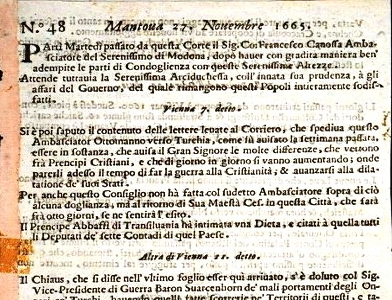 N.° 48 Mantoua 27. Nouembre 1665.
PArtì Martedì passato da questa Corte il Sig. Co: Francesco Canossa Amba-
sciatore del Serenissimo di Modona, dopò hauer con gradita maniera ben'
adempite le parti di Condoglienza con queste Serenissime Altezze.
Attende tuttauia la Serenissima Arciduchessa, coll'innata sua prudenza, à gli
assari del Gouerno, del quale rimangono questi Popoli interamente sodis-
fatti.
Vienna 7. detto.
Si è poi saputo il contenuto delle lettere leuate al Corriero, che spediua questo
Ambasciator Ottomanno verso Turchia, come fù auisato la settimana passata,
essere in sostanza, che auisa il Gran Signore le molte differenze, che vertono
frà Prencipi Cristiani, e che di giorno in giorno si vanno aumentando; onde
parerli adesso il tempo di far la guerra alla Cristianità, & auanzarsi alla dila-
tatione de' suoi Stati.
Per anche questo Consiglio non hà fatta col sudetto Ambasciatore sopra di ciò
alcuna doglianza, ma al ritorno di Sua Maestà Ces. in questa Città, che sarà
frà otto giorni, se ne sentirà l'esito.
Il Principe Abbaffi di Transiluania hà intimata vna Dieta, e citati à quella tutti
li Deputati de' sette Contadi di quel Paese.
Altra di Vienna 11. detto.
Il Chiaus, che si disse nell'vltimo foglio esser quì arriuato, s'è doluto col Sig.
Vice-Presidente di Guerra Baron de' mali portamenti degl'On-